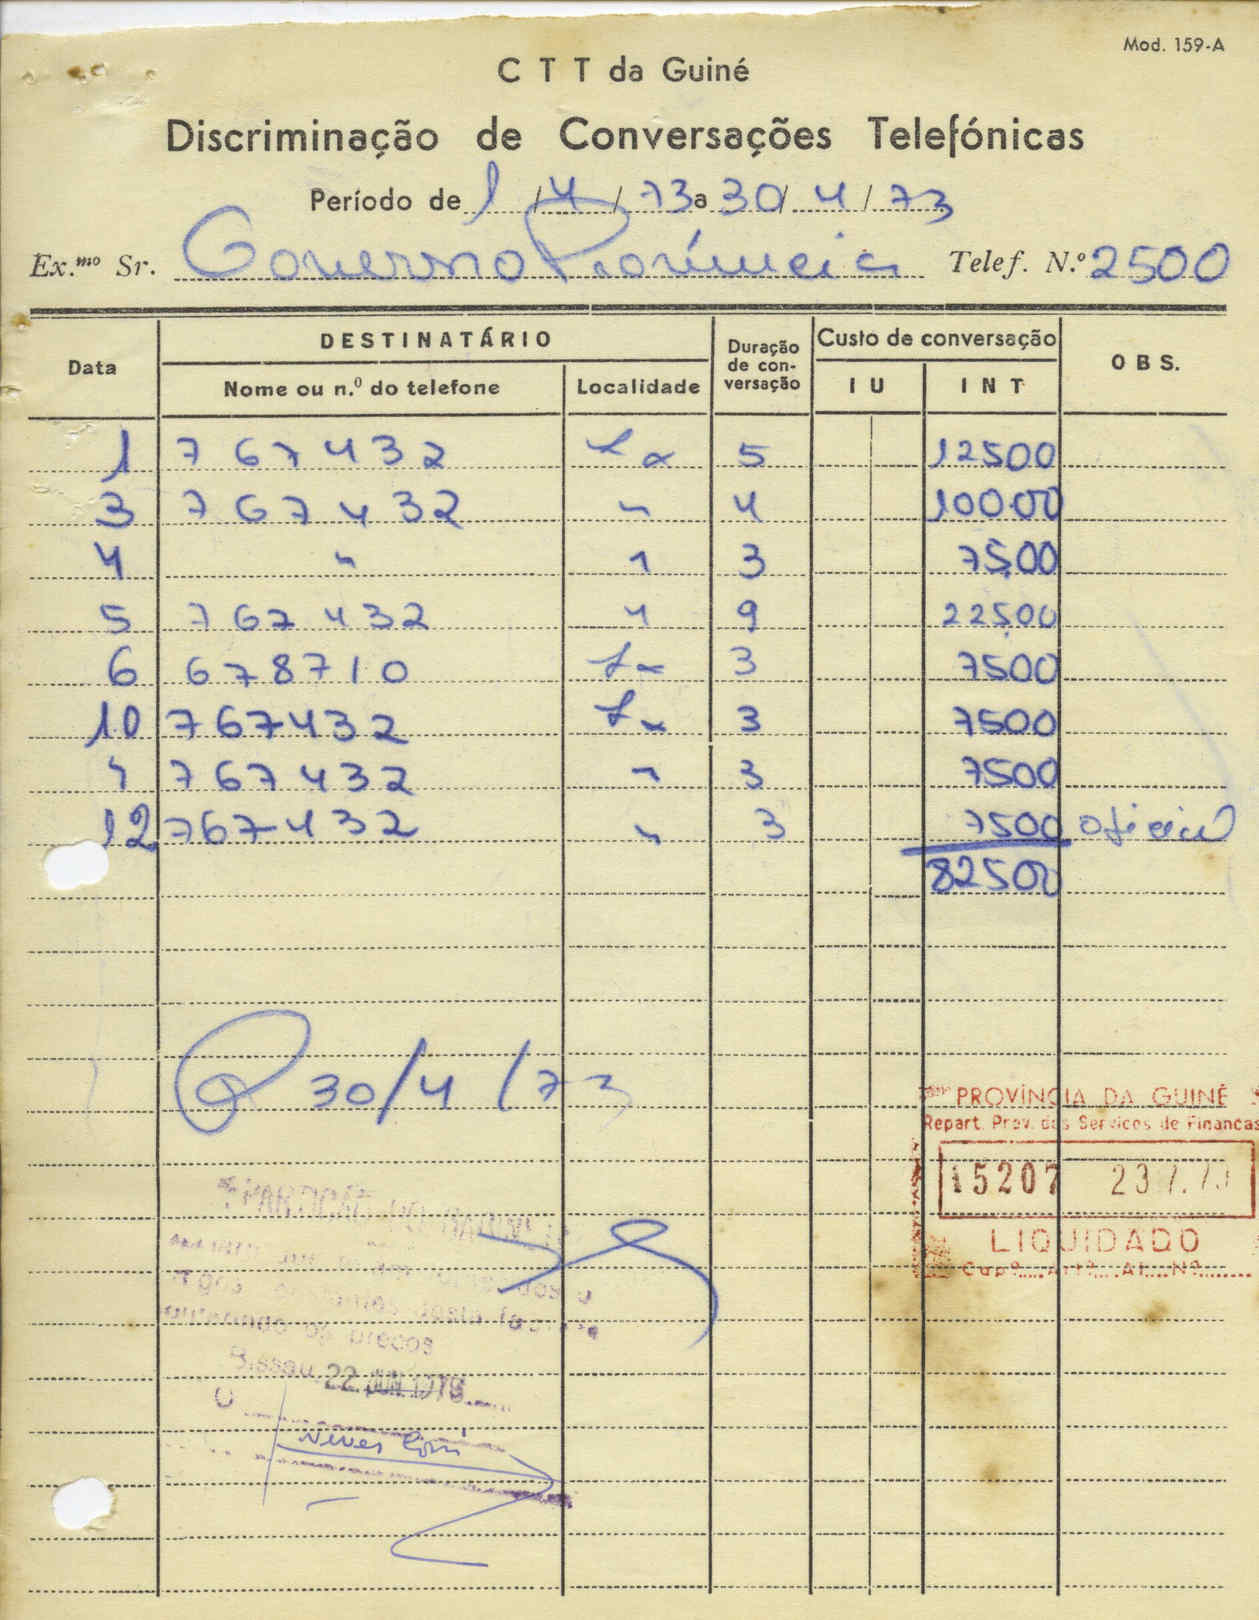 Mod. 159-A
C T T da Guiné
Discriminação de Conversações Telefónicas
Período de 1/4/73 a 30/4/73
Ex.mo Sr. Governo Província Telef. N.º 2500
Data DESTINATÁRIO Duração de conversação Custo de conversação OBS.
Nome ou n.º do telefone Localidade I U I N T
1 767432 Lx 5 12500
3 767432 " 4 100.00
4 " " 3 75.00
5 767432 " 9 225.00
6 678710 Lx 3 7500
10 767432 Lx 3 7500
" 767432 " 3 7500
12 767432 " 3 7500 oficial
82500
30/4/73
PROVÍNCIA DA GUINÉ
Repart. Prov. dos Servicos de Financas
15207 23 7.73
LIQUIDADO
Cap.º Art.º Al. N.º
os preços
Bissau 22 JUN 1973
O